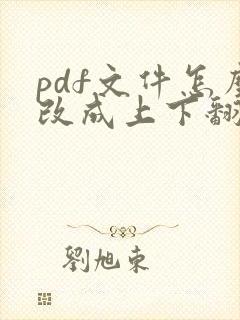 pdf文件怎
改成上下翻
劉旭东